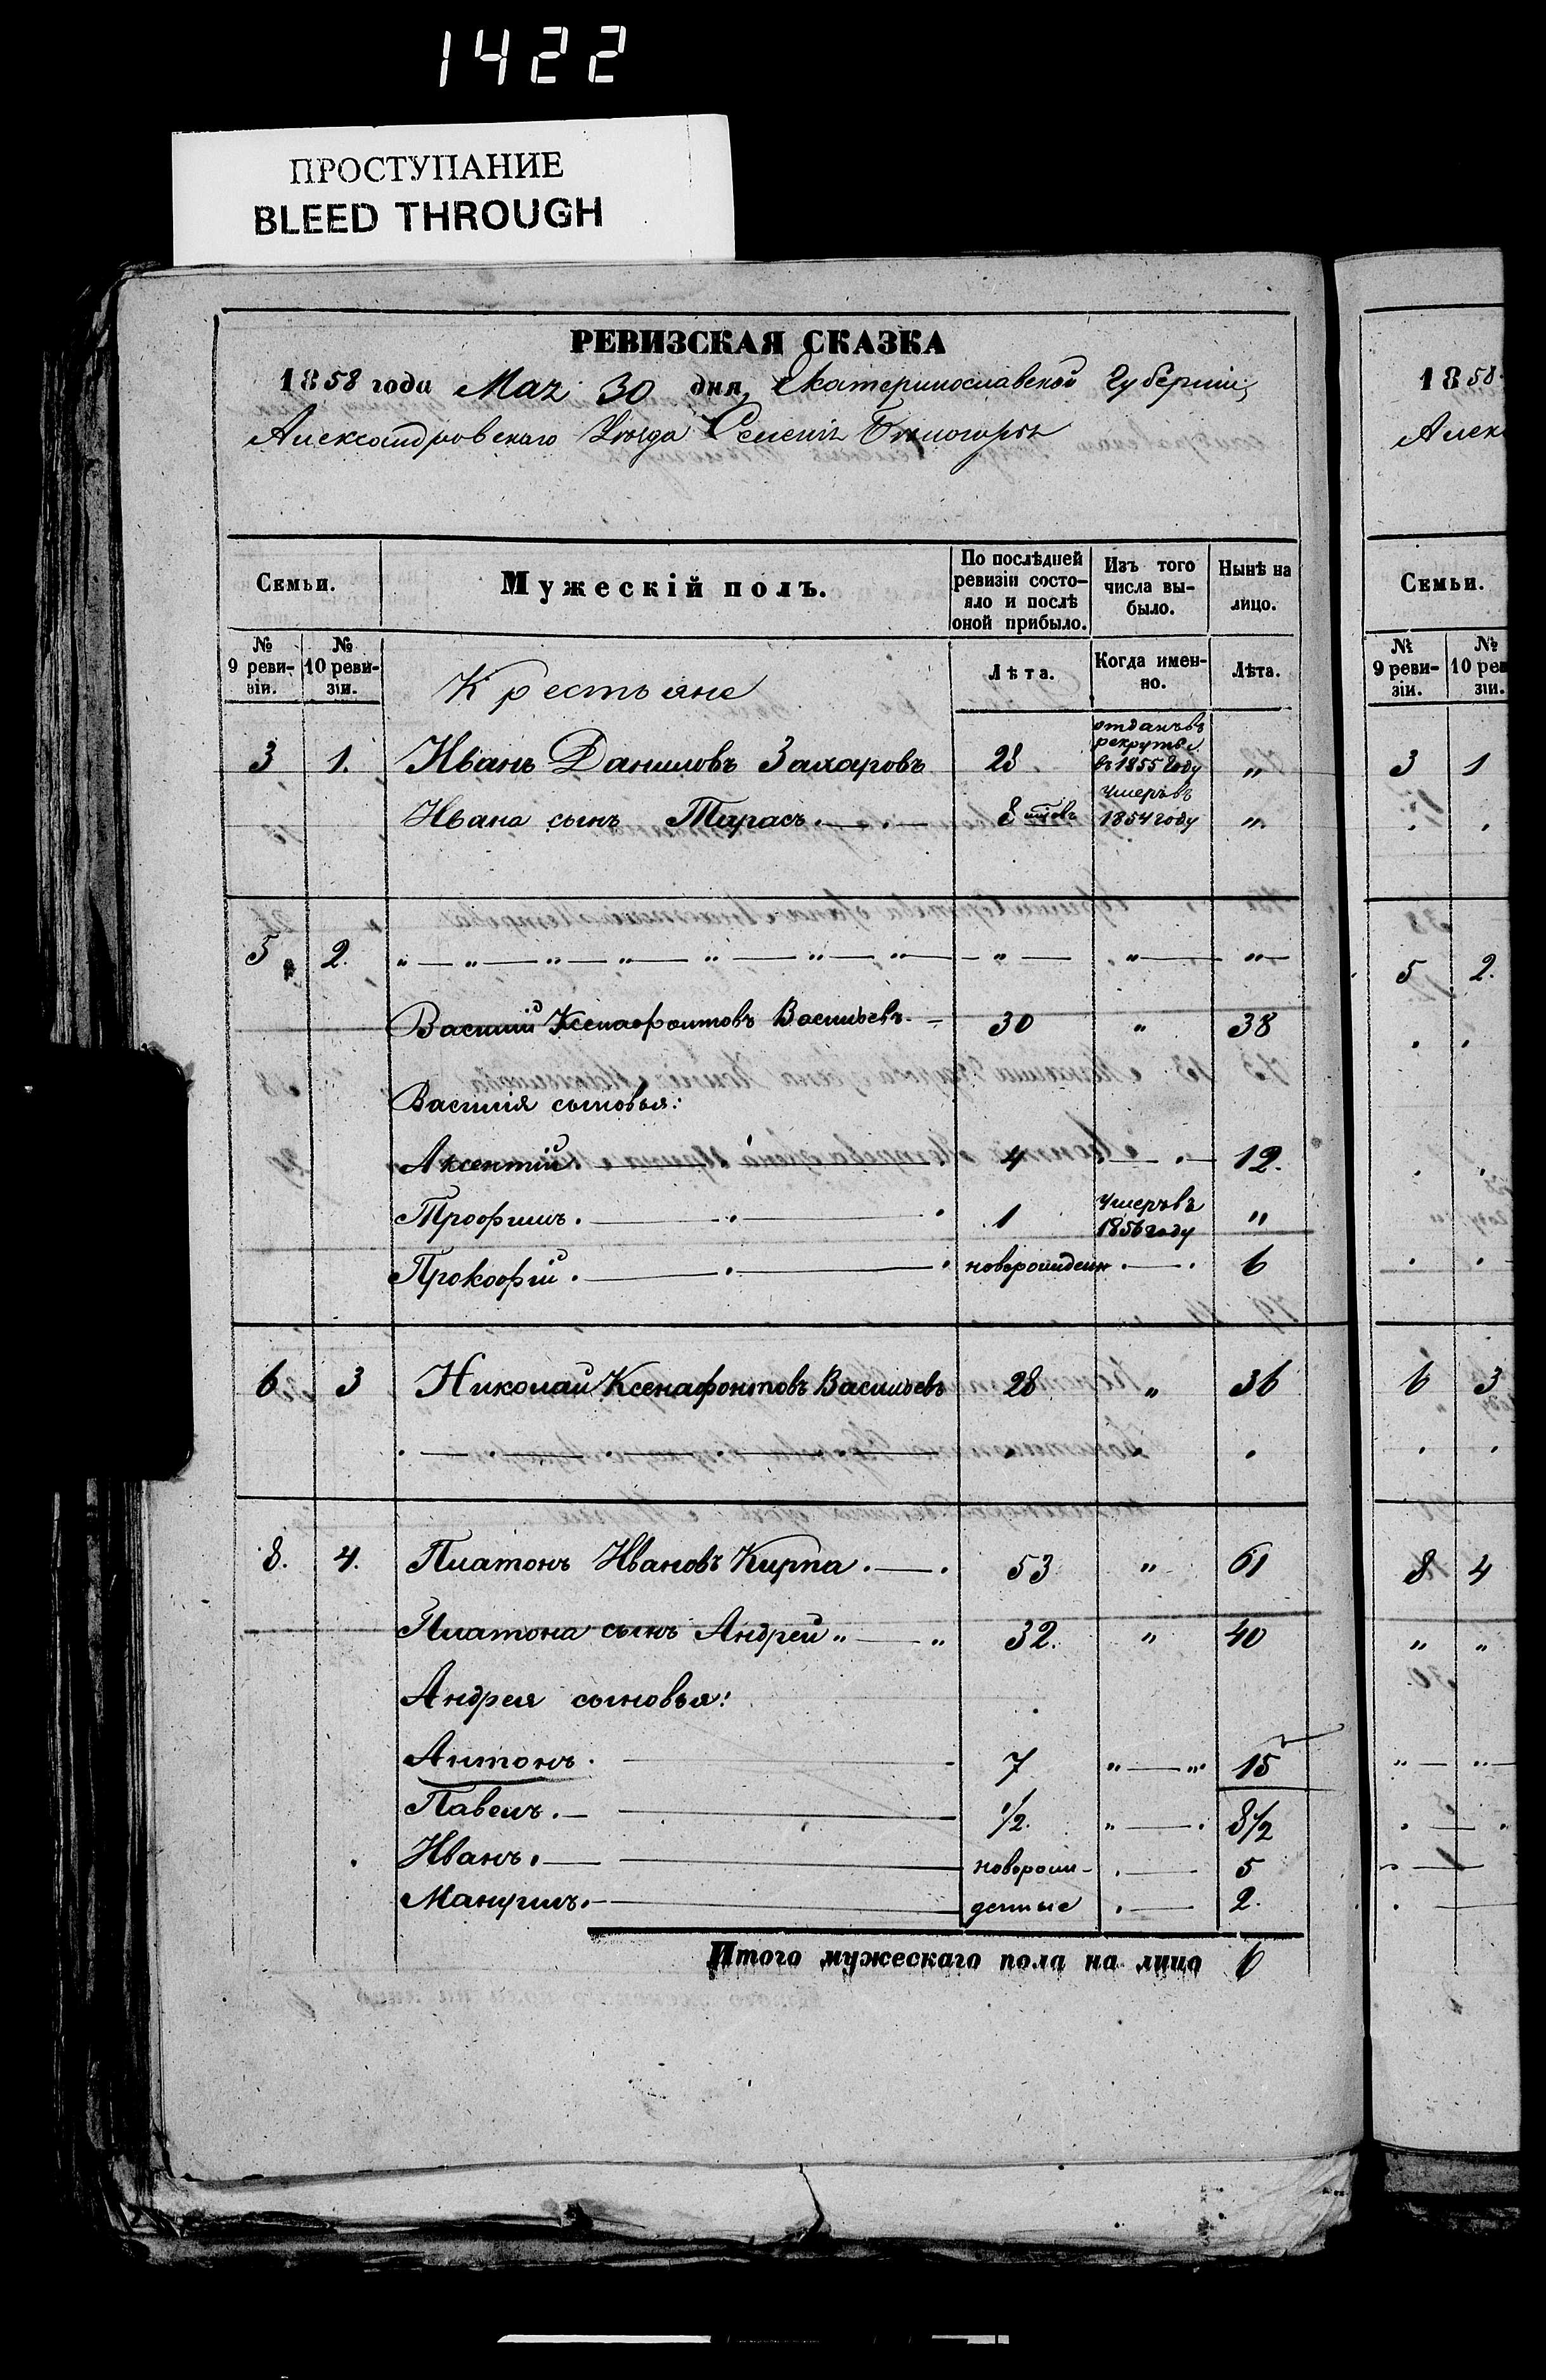 1422
ПРОСТУПАНИЕ
BLEED THROUGH
РЕВИЗСКАЯ СКАЗКА
1858 года Мая 30 дня, Екатеринославской Губерніи,
Александровскаго Уѣзда Селенія Бѣлогорья
Семьи. Мужескій полъ. По послѣдней ревизіи состояло и послѣ оной прибыло. Изъ того числа выбыло. Нынѣ на лицо.
№ 9 ревизіи. № 10 ревизіи. Крестьяне Лѣта. Когда именно. Лѣта.
3 1. Иванъ Даниловъ Захаровъ 28 отданъ въ рекруты въ 1855 году „
Ивана сынъ Тарасъ. 8 умеръ въ 1854 году „
5 2. „ — „ — „ — „ — „ — „ — „ — „ — „ — „
Василій Ксенафонтовъ Васильевъ 30 „ 38
Василія сыновья:
Аксентій 4 12.
Трофимъ. 1 умеръ въ 1856 году „
Прокофій. новорожден 6
6 3 Николай Ксенафонтовъ Васильевъ 28 „ 36
8. 4. Платонъ Ивановъ Кирпа. 53 „ 61
Платона сынъ Андрей „ — „ 32. „ 40
Андрея сыновья:
Антонъ. 7 „ — „ 15
Павелъ. 1/2. „ — 8 1/2
Иванъ. новорож- 5
Мануилъ. денные 2.
Итого мужескаго пола на лицо 6
1858
Алек
Семьи.
№ 9 ревизіи. № 10 рев зіи.
3 1
5 2.
6 3
8 4